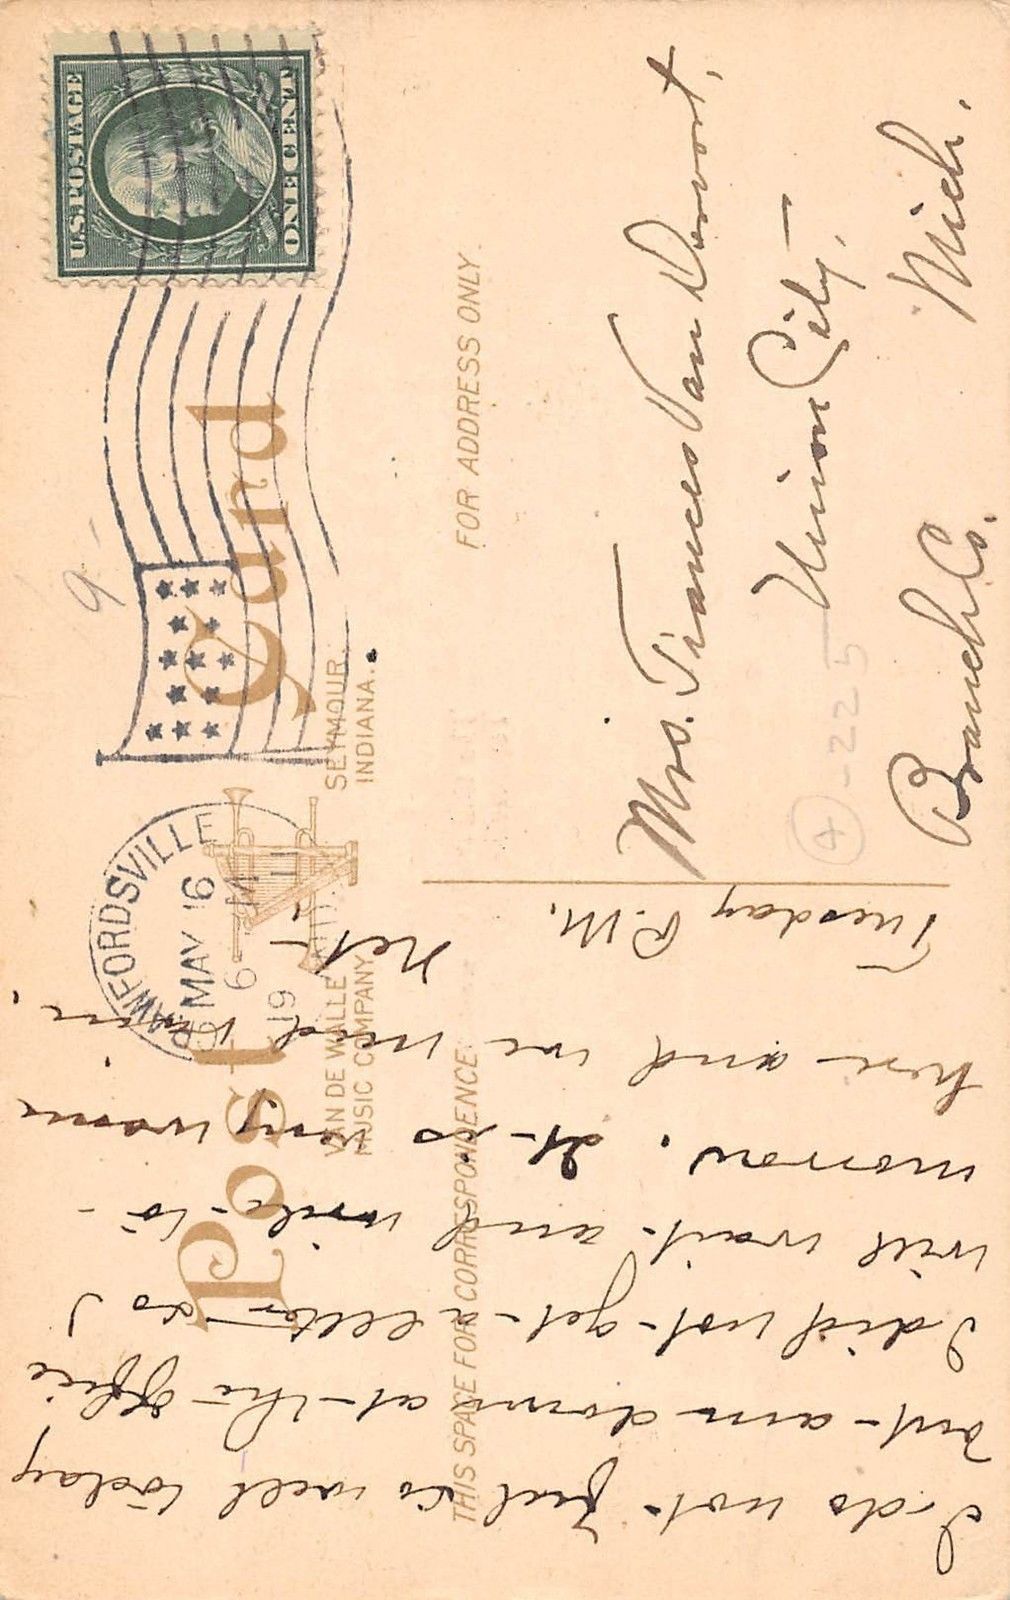 Post Card
CRAWFORDSVILLE
MAY 16
6 - M
1911
IND.
U.S. POSTAGE
ONE CENT
VAN DE WALLE
MUSIC COMPANY
SEYMOUR,
INDIANA.
THIS SPACE FOR CORRESPONDENCE.
FOR ADDRESS ONLY.
Tuesday P.M.
I do not feel so well today
but am down at the office
I did not get a letter so I
will wait and write to-
morrow. It is very warm
here and we need rain.
Net
Mrs. Frances Van Dervort,
Union City,
Branch Co. Mich.
4 - 225
9-